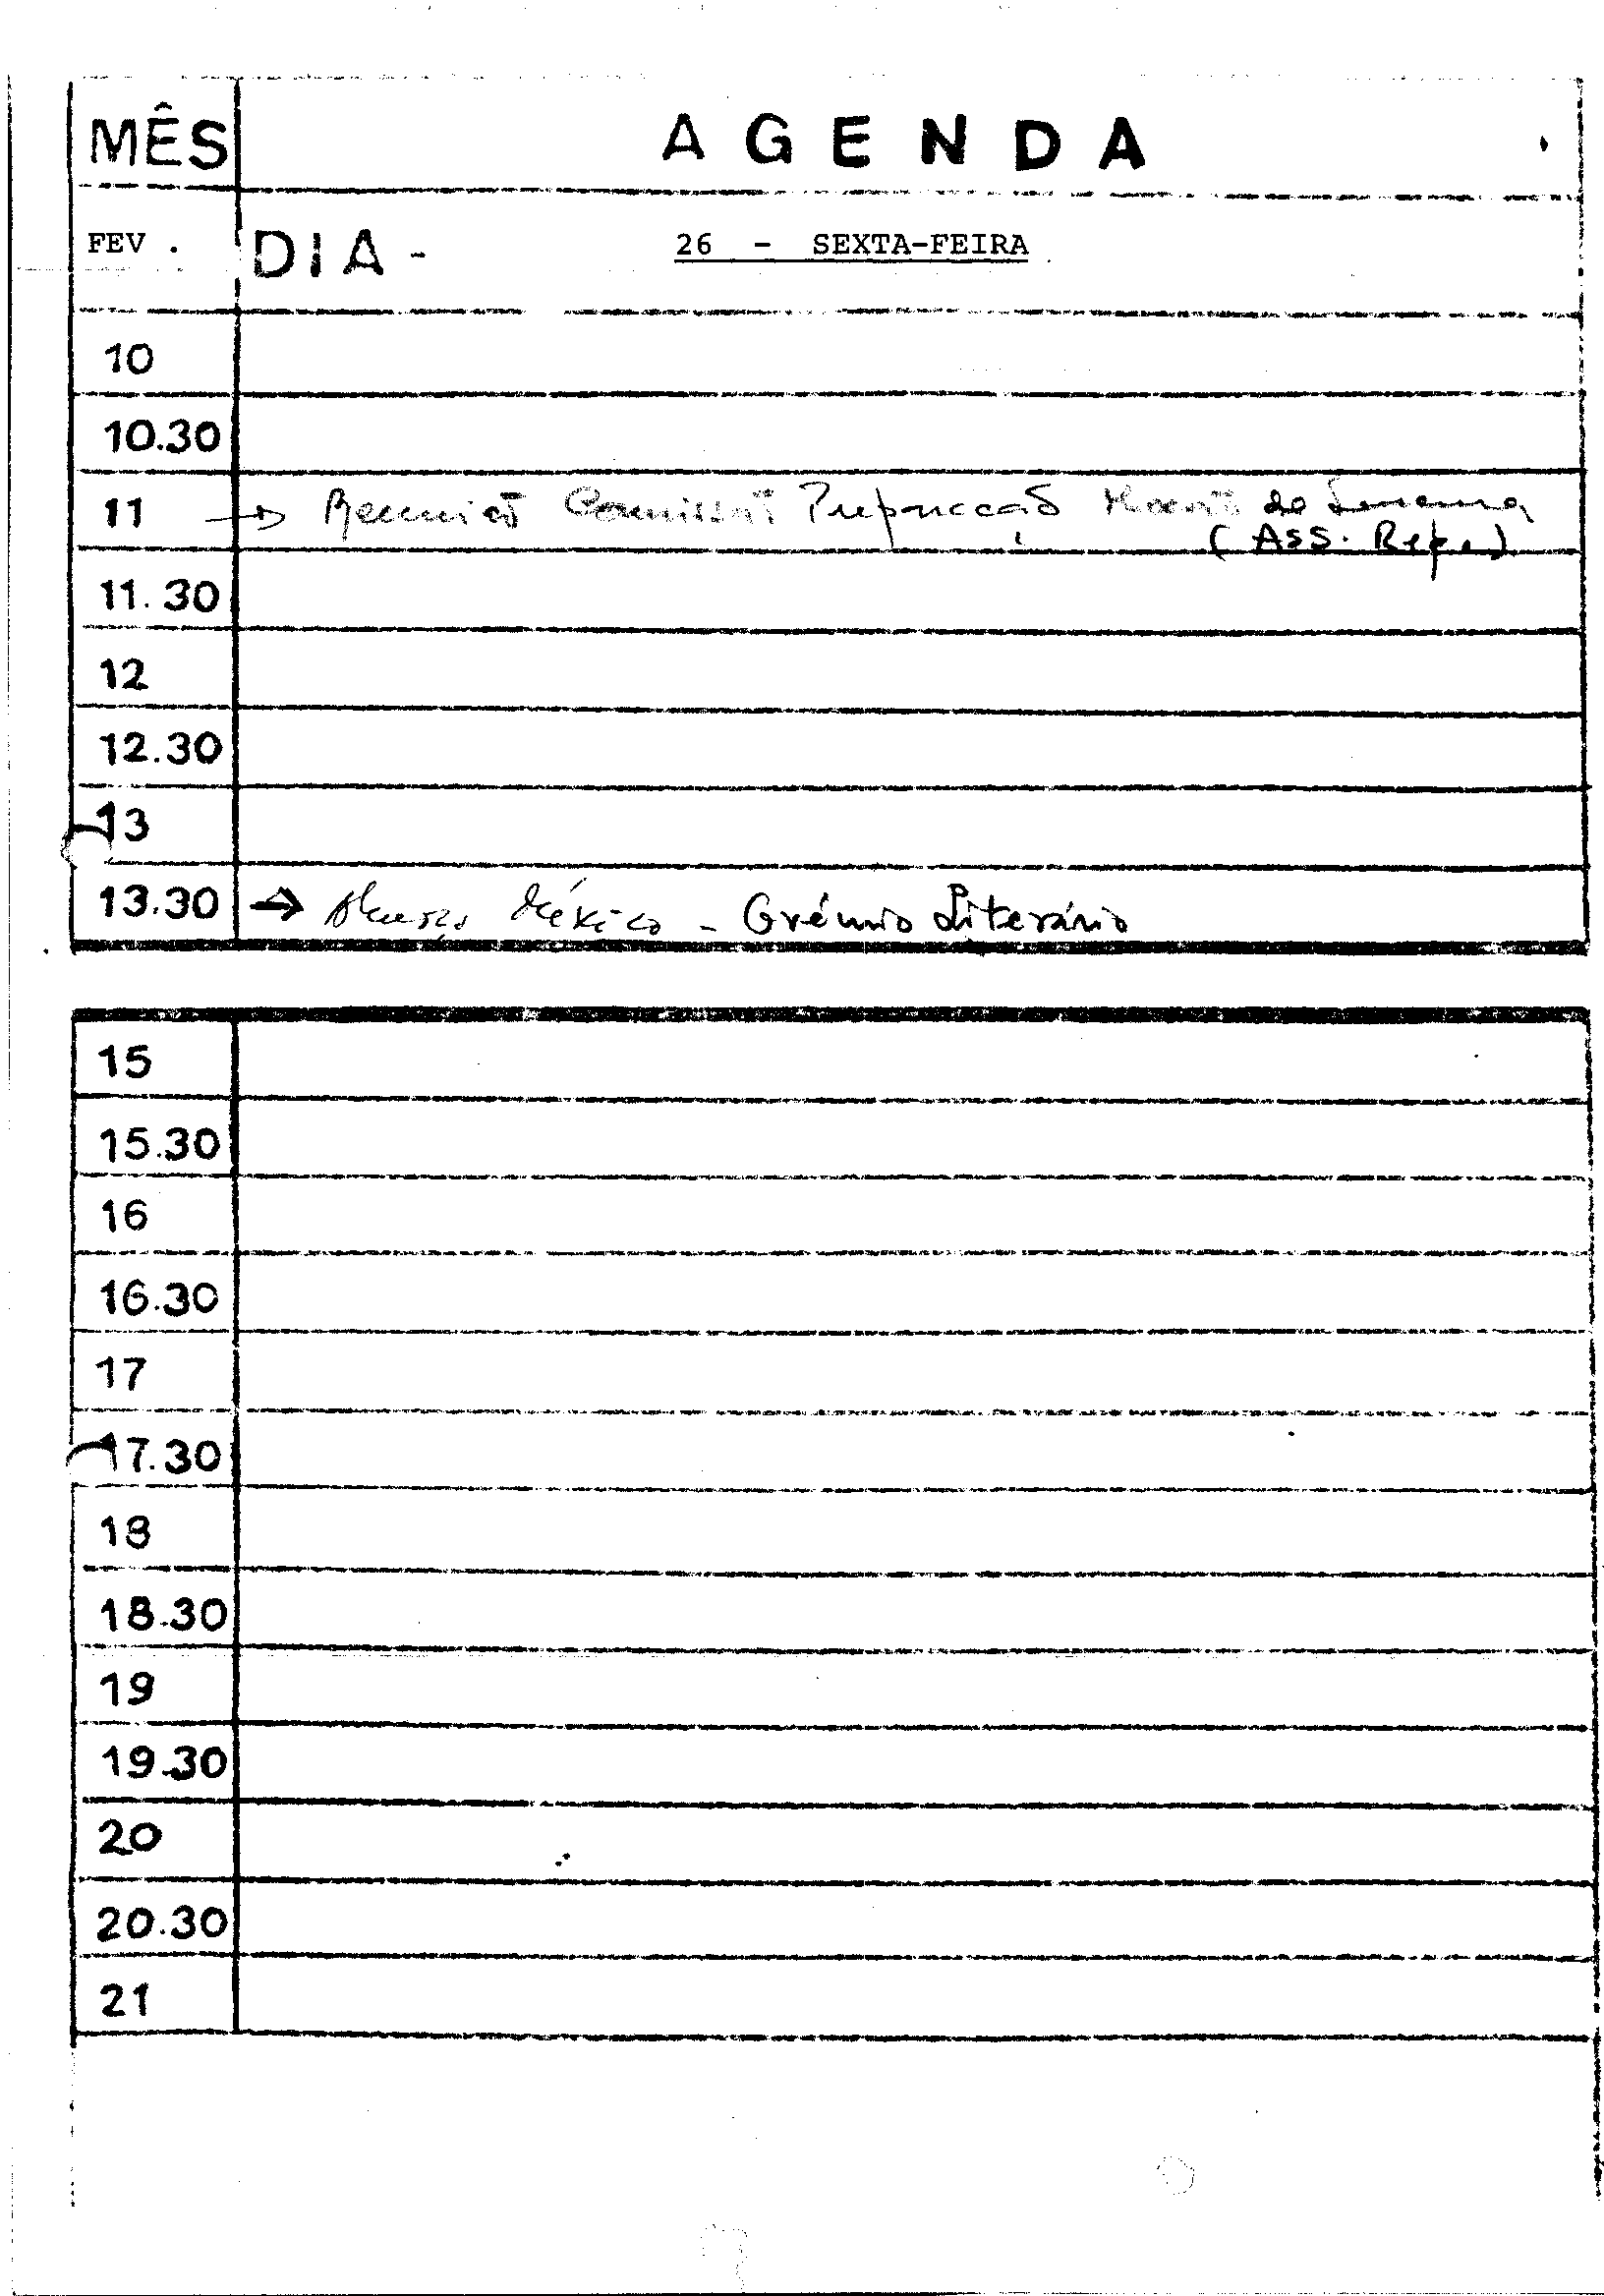 MÊS
A G E N D A
FEV .
DIA -
26 - SEXTA-FEIRA
10
10.30
11 → Reunião Comissão Preparação de
(Ass. Rep.)
11.30
12
12.30
13
13.30 → Almoço México - Grémio Literário
15
15.30
16
16.30
17
17.30
18
18.30
19
19.30
20
20.30
21